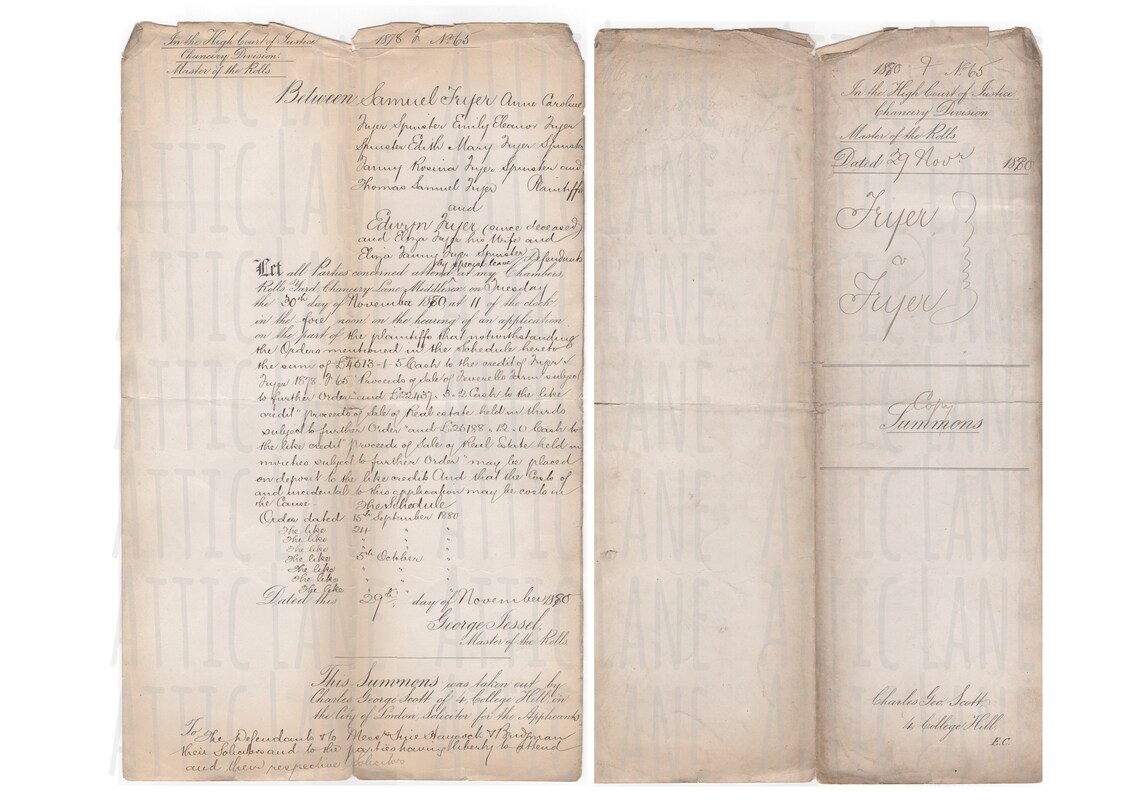 In the High Court of Justice
Chancery Division
Master of the Rolls
1878 F No 65
Between Samuel Fryer Anne Caroline
Fryer Spinster Emily Eleanor Fryer
Spinster Edith Mary Fryer Spinster
Fanny Rosina Fryer Spinster and
Thomas Samuel Fryer Plaintiffs
and
Edwyn Fryer (since deceased)
and Eliza Fryer his Wife and
Eliza Fanny Fryer Spinster Defendants
by special leave
Let all Parties concerned attend at my Chambers
Rolls Yard, Chancery Lane, Middlesex on Tuesday
the 30th day of November 1880 at 11 of the clock
in the fore noon on the hearing of an application
on the part of the plaintiffs that notwithstanding
the Orders mentioned in the Schedule hereto
the sum of £4513-1-5 Cash to the credit of Fryer v
Fryer 1878 F 65 "Proceeds of Sale of Farm subject
to further Order" and £22437-3-2 Cash to the like
credit "proceeds of Sale of Real estate held in thirds
subject to further Order" and £25188-12-0 Cash to
the like credit "proceeds of Sale of Real Estate held in
moieties subject to further Order" may be placed
on deposit to the like credits And that the Costs of
and incidental to this application may be costs in
the Cause.
The Schedule
Order dated 15th September 1880
The like 24 " "
The like " " "
The like " " "
The like 5th October "
The like " " "
The like " " "
The like " " "
Dated this 29th day of November 1880
George Jessel
Master of the Rolls
This Summons was taken out by
Charles George Scott of 4 College Hill in
the City of London Solicitor for the Applicants
To The Defendants & to Messrs Haycock &
their Solicitors and to the parties having liberty to attend
and their respective Solicitors
1880 F No 65
In the High Court of Justice
Chancery Division
Master of the Rolls
Dated 29 Novr 1880
Fryer
v
Fryer
Copy
Summons
Charles Geo. Scott
4 College Hill
E.C.
ATTIC LANE